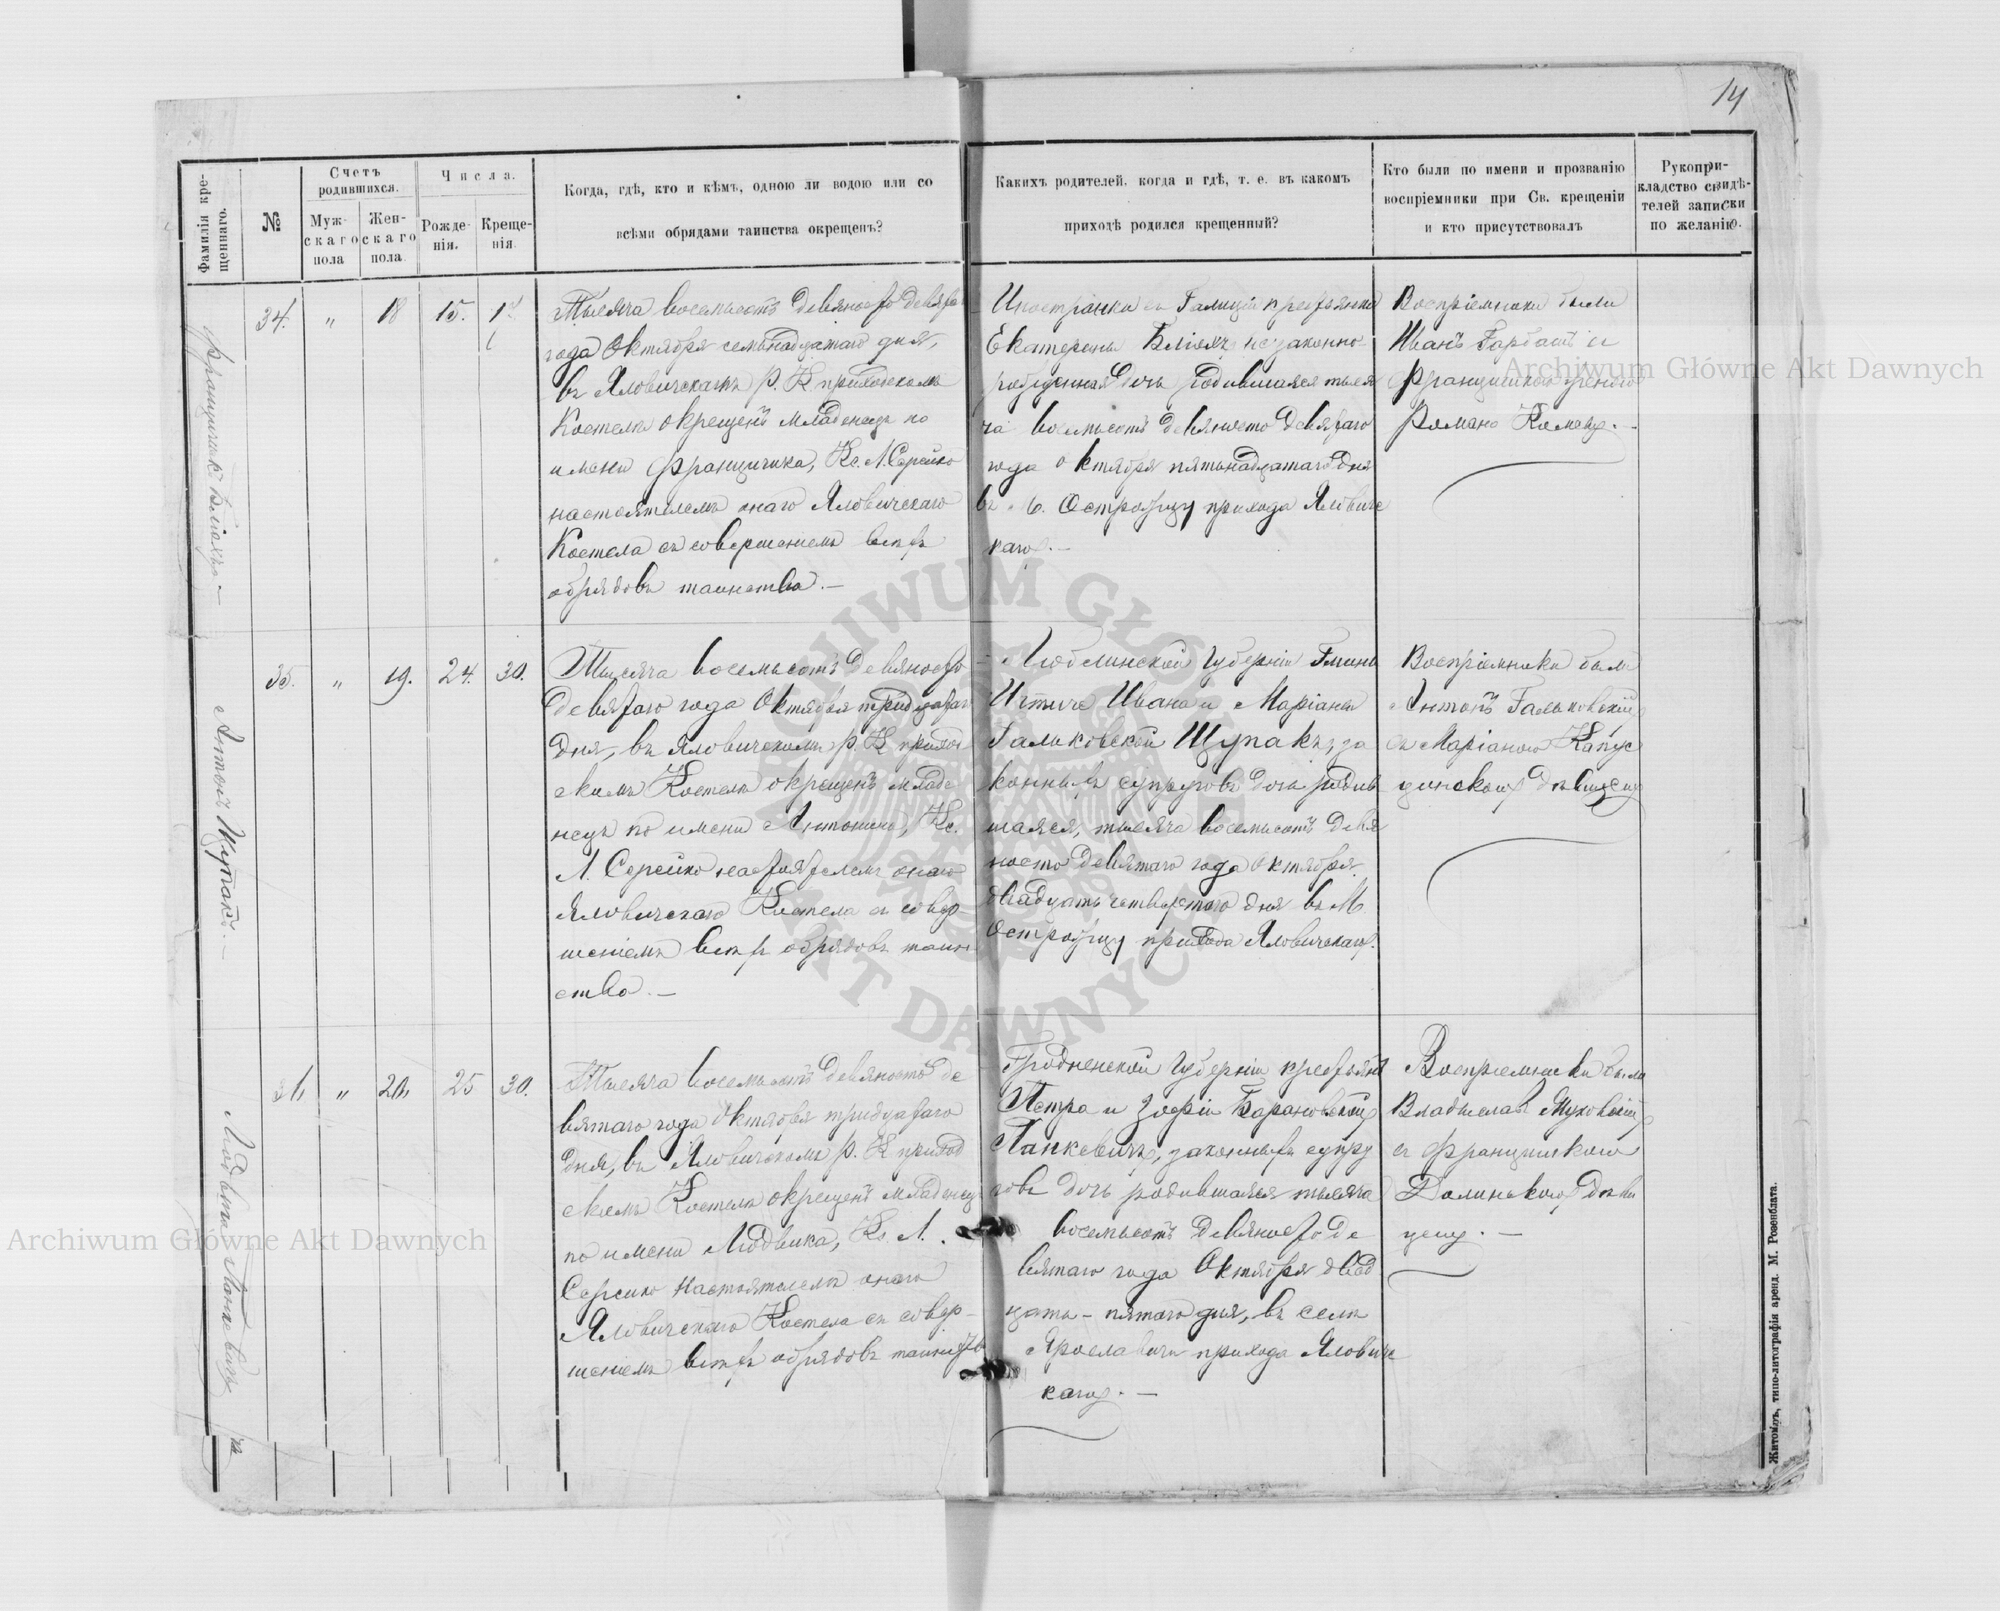 14
Фамилія кре-
щеннаго.
№
Счетъ
родившихся.
Муж-
скаго
пола
Жен-
скаго
пола
Числа.
Рожде-
нія.
Креще-
нія.
Когда, гдѣ, кто и кѣмъ, одною ли водою или со
всѣми обрядами таинства окрещенъ?
Какихъ родителей, когда и гдѣ, т. е. въ какомъ
приходѣ родился крещенный?
Кто были по имени и прозванію
воспріемники при Св. крещеніи
и кто присутствовалъ
Рукопри-
кладство свидѣ-
телей записки
по желанію.
34. " 18 15. 17
Тысяча восемьсотъ девяносто девята
года Октября семьнадцатаго дня,
въ Яловичскомъ Р. К приходскомъ
Костелѣ окрещенъ младенецъ по
имени Францишка, Кс. Л. Серейко
настоятелемъ онаго Яловичскаго
Костела съ совершеніемъ всѣхъ
обрядовъ таинства. —
Иностранки съ Галиціи крестьянки
Екатерины незаконно-
рожденная дочь родившаяся тыся
ча восемьсотъ девяносто девятаго
года октября пятьнадцатаго дня
въ М. Остроѣцу прихода Яловичс
каго. —
Воспріемники были
Иванъ Горбатъ и
Францишкою женою
Романа
35. " 19. 24. 30.
Антон Щупакъ. —
Тысяча восемьсотъ девяносто
девятаго года Октября тридцатаго
дня, въ Яловичскомъ Р. К приход
скомъ Костелѣ окрещенъ младе
нецъ по имени Антонина, Кс.
Л. Серейко настоятелемъ онаго
Яловичскаго Костела съ совер-
шеніемъ всѣхъ обрядовъ таин-
ства. —
Люблинской Губерніи Гмины
Ивана и Маріанны
Гальковской Щупакъ за
конныхъ супруговъ дочь родив
шаяся, тысяча восемьсотъ девя
носто девятаго года Октября
двадцать четвертого дня въ М
Остроѣцу прихода Яловичскаго.
Воспріемники были
Антонъ Гальковскій
съ Маріаною Капус
цинскою дѣвицею
36 " 20. 25 30.
Людвика Панкевичъ
Тысяча восемьсотъ девяносто де
вятаго года Октября тридцатаго
дня, въ Яловичскомъ Р. К приход
скомъ Костелѣ окрещенъ младенец
по имени Людвика, Кс. Л.
Серейко Настоятелемъ онаго
Яловичскаго Костела съ совер-
шеніемъ всѣхъ обрядовъ таинства
Гродненской Губерніи крестьянъ
Петра и Зофіи Барановской
Панкевичъ, законныхъ супру
говъ дочь родившаяся тысяча
восемьсотъ девяносто де
вятаго года Октября двад
цать - пятаго дня, въ селѣ
Ярославичи прихода Яловичс
каго. —
Воспріемники были
Владиславъ Муховскій
съ Францишкою
Долинскою дѣви
цею. —
Житоміръ, типо-литографія аренд. М. Розенблата.
Archiwum Główne Akt Dawnych
Archiwum Główne Akt Dawnych
ARCHIWUM GŁÓWNE AKT DAWNYCH